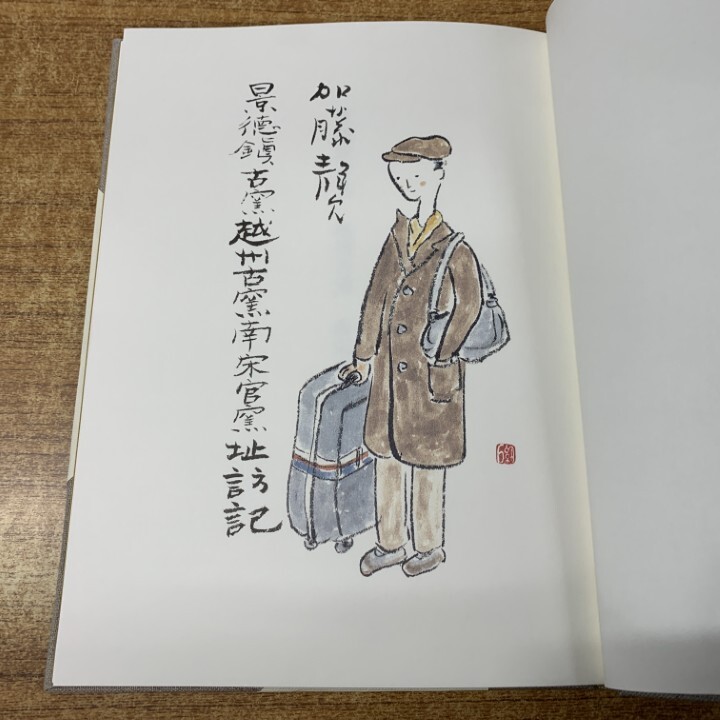 加藤静允
景德鎮古窯越州古窯南宋官窯址訪記